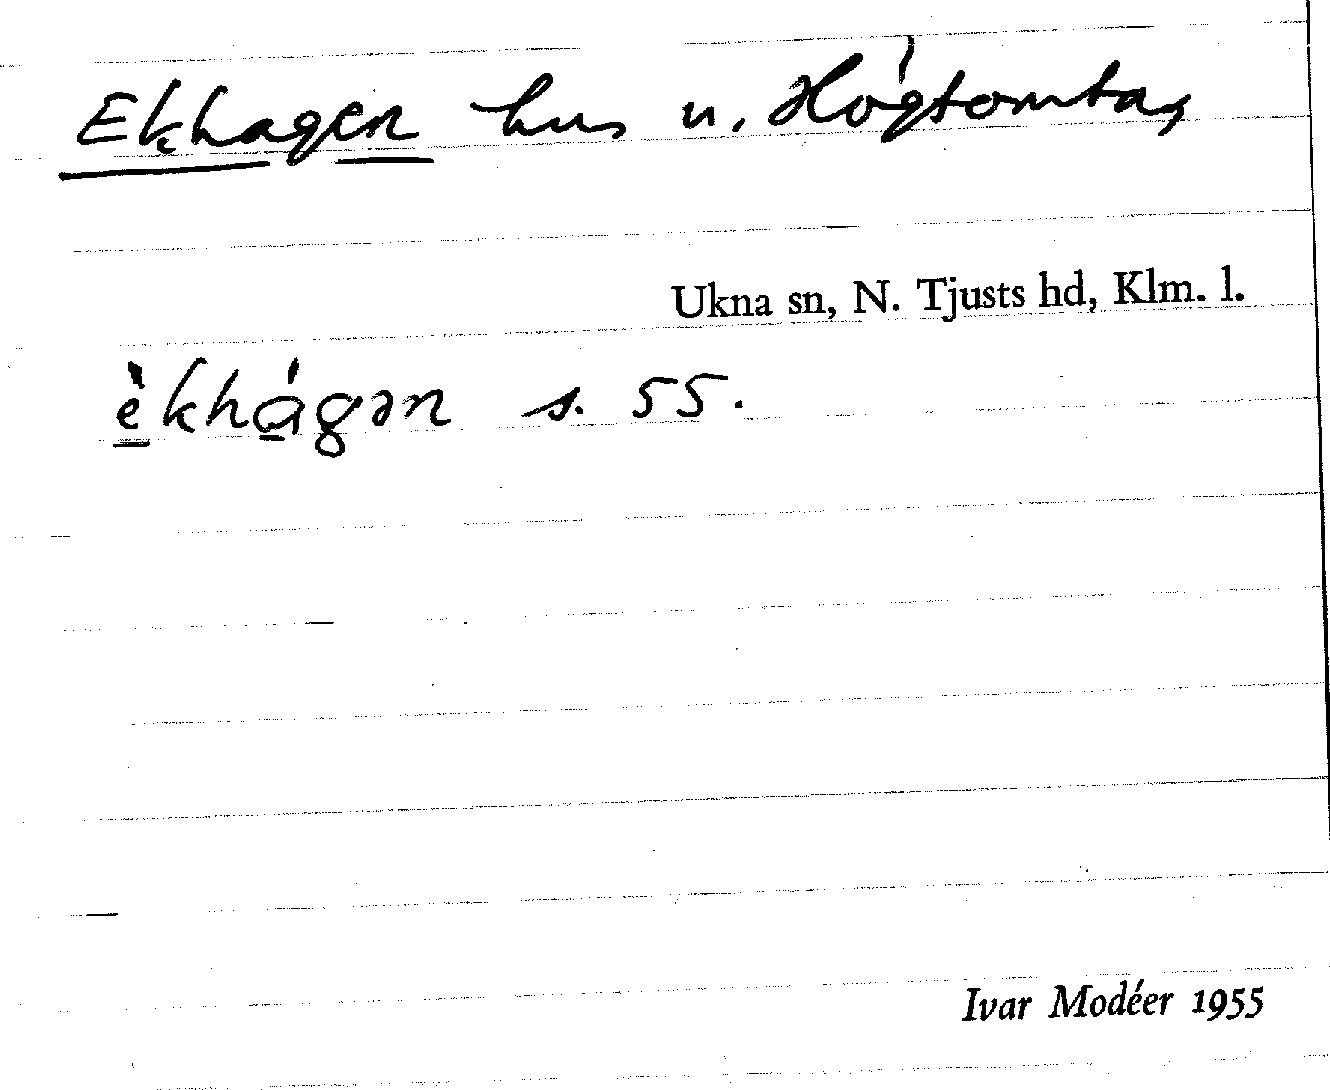 Ekhagen hus u. Högtomta,
Ukna sn, N. Tjusts hd, Klm. l.
èkhágən s. 55.
Ivar Modéer 1955